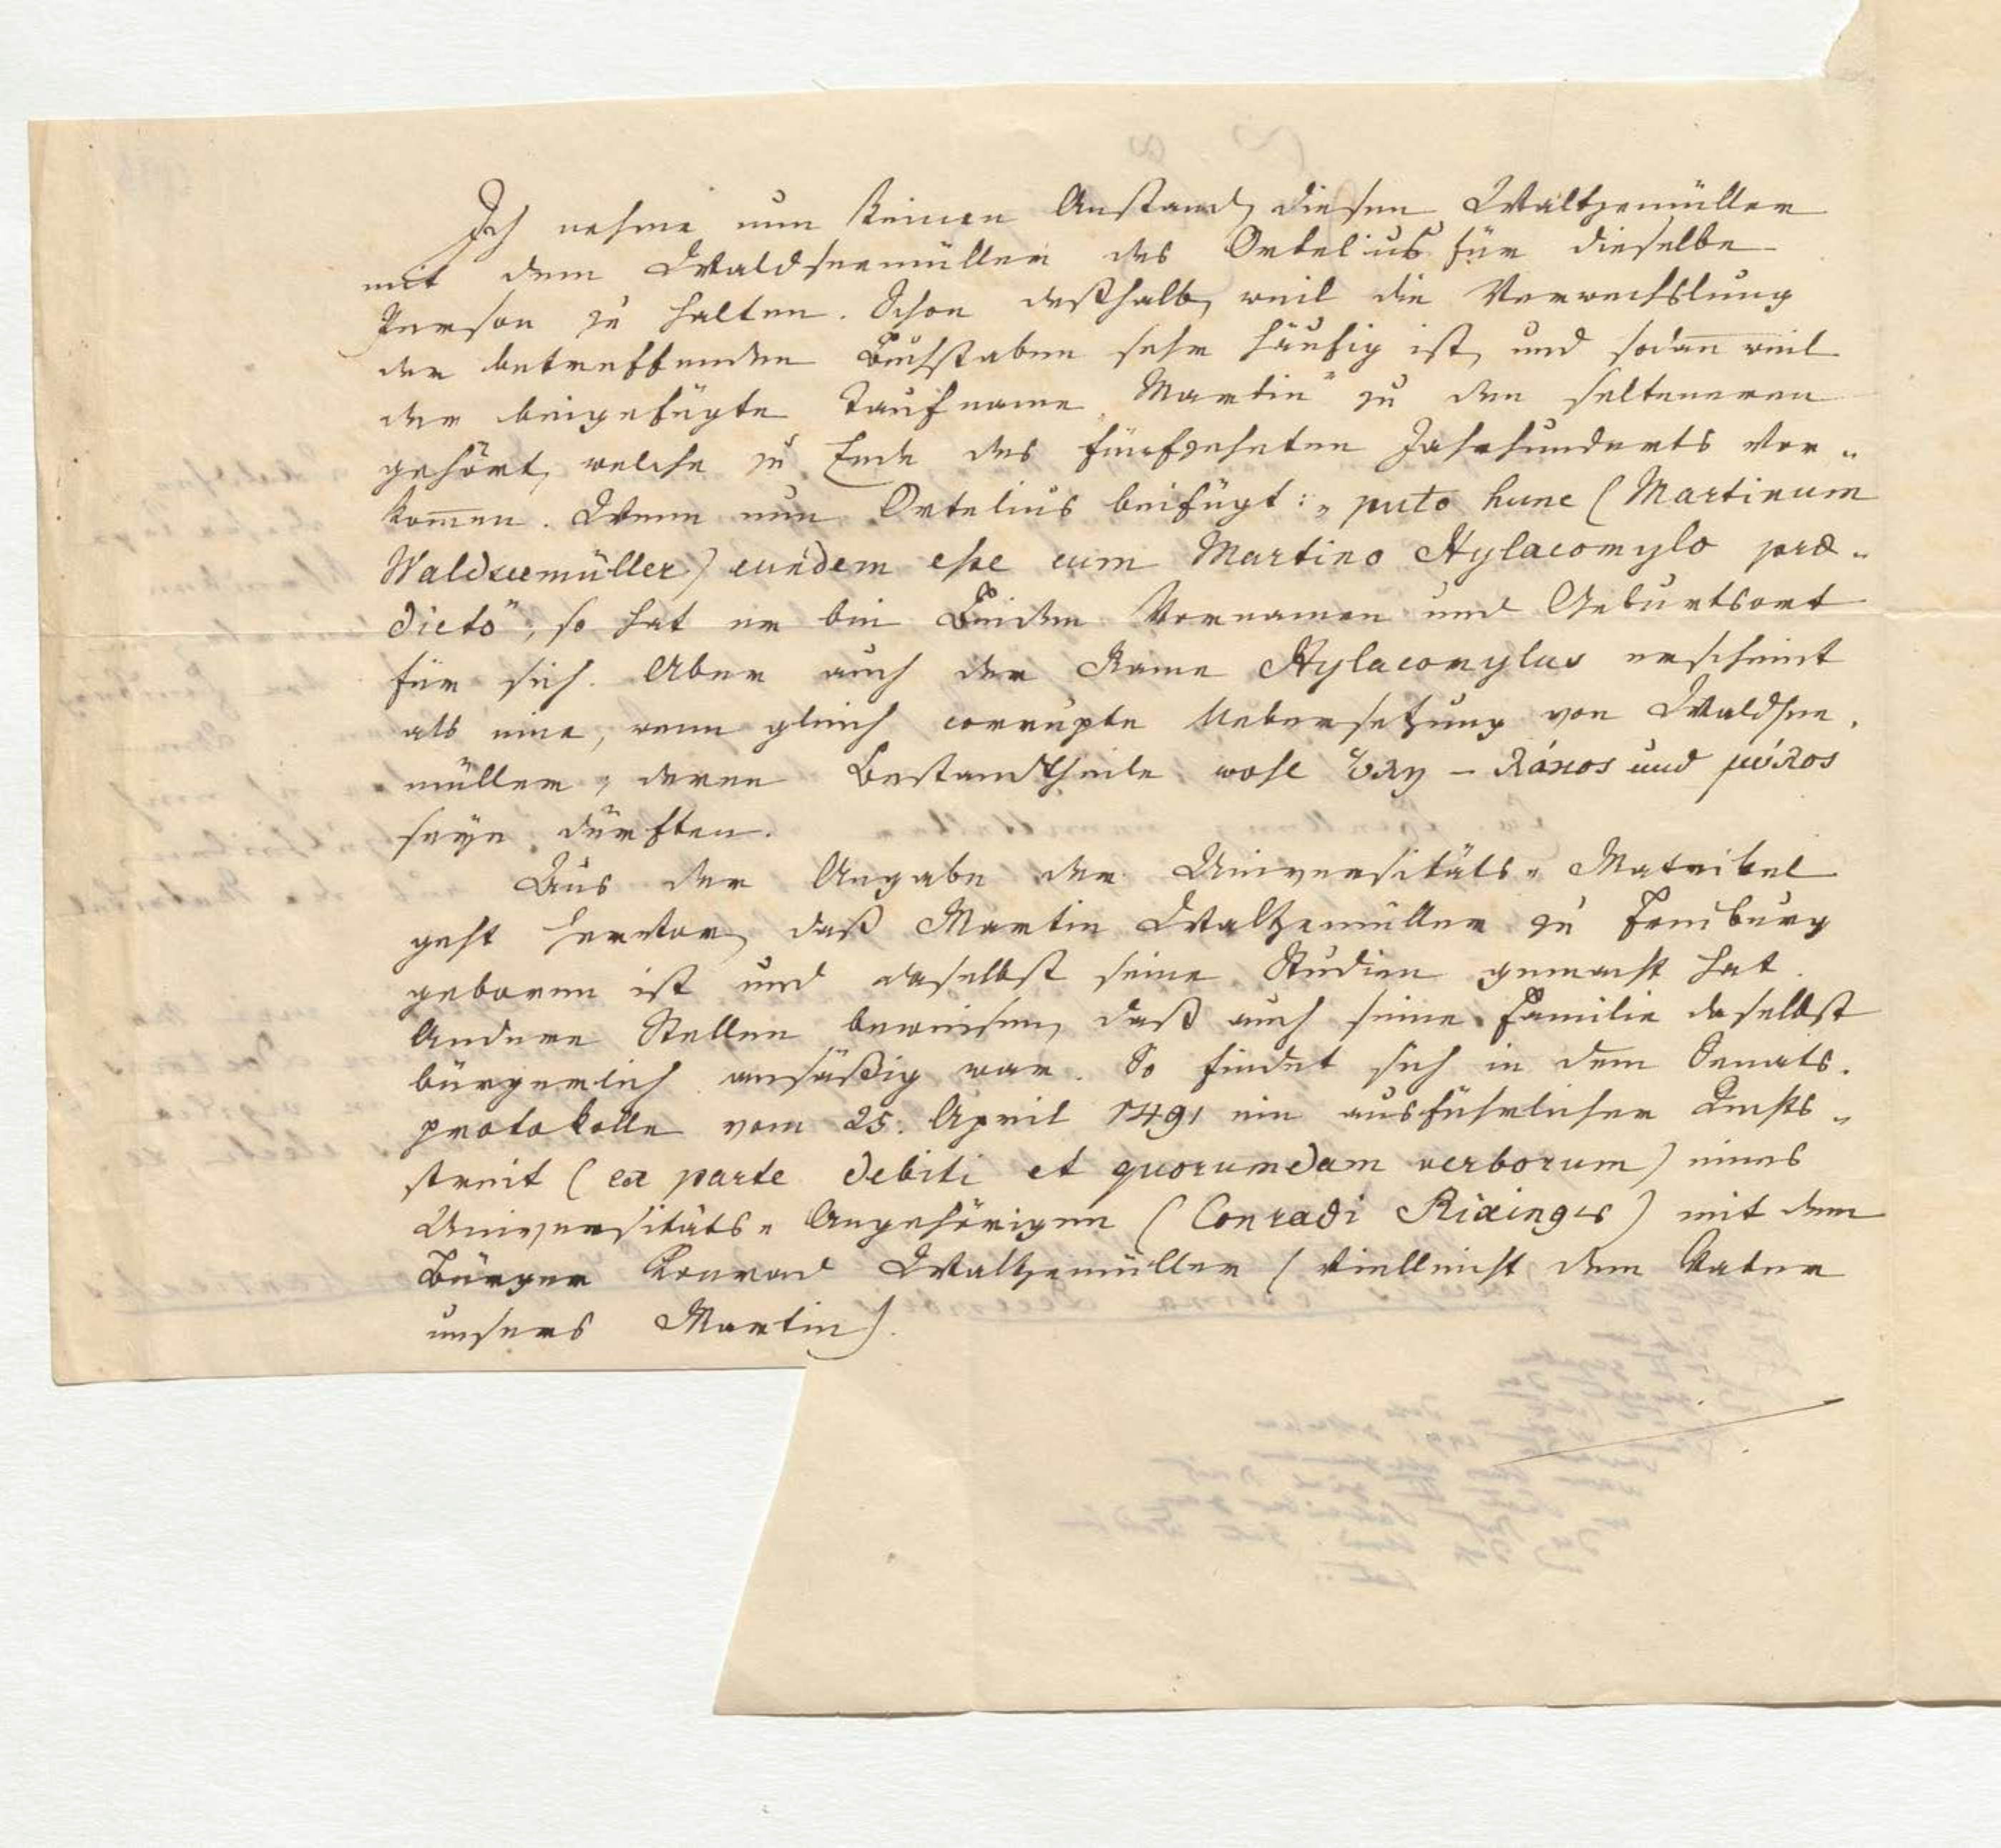 Ich nehme nun keinen Anstand, diesen Waltzemüller
mit dem Waldseemüller des Ortelius für dieselbe
Person zu halten. Schon deßhalb, weil die Verwechslung
der betreffenden Buchstaben sehr häufig ist, und sodan̄ weil
der beigefügte Taufname „Martin" zu den selteneren
gehört, welche zu Ende des fünfzehnten Jahrhunderts vor-
kom̄en. Wenn nun Ortelius beifügt: „puto hunc (Martinum
Waldseemüller) eundem esse cum Martino Hylacomylo præ-
dicto", so hat er bei Beiden Vornamen und Geburtsort
für sich. Aber auch der Name Hylacomylus erscheint
als eine, wenn gleich corrupte Uebersetzung von Waldsee-
müller, deren Bestandtheile wohl ὕλη – λάκος und μύλος
seyn dürften.
Aus der Angabe der Universitäts-Matrikel
geht hervor, daß Martin Waltzemüller zu Freiburg
geboren ist und daselbst seine Studien gemacht hat.
Andere Stellen beweisen, daß auch seine Familie daselbst
bürgerlich ansäßig war. So findet sich in dem Senats-
protokolle vom 25. April 1491 ein ausführlicher Rechts-
streit (ex parte debiti et quorumdam verborum) eines
Universitäts-Angehörigen (Conradi Rixinger) mit dem
Bürger Konrad Waltzemüller (vielleicht dem Vater
unsers Martin).